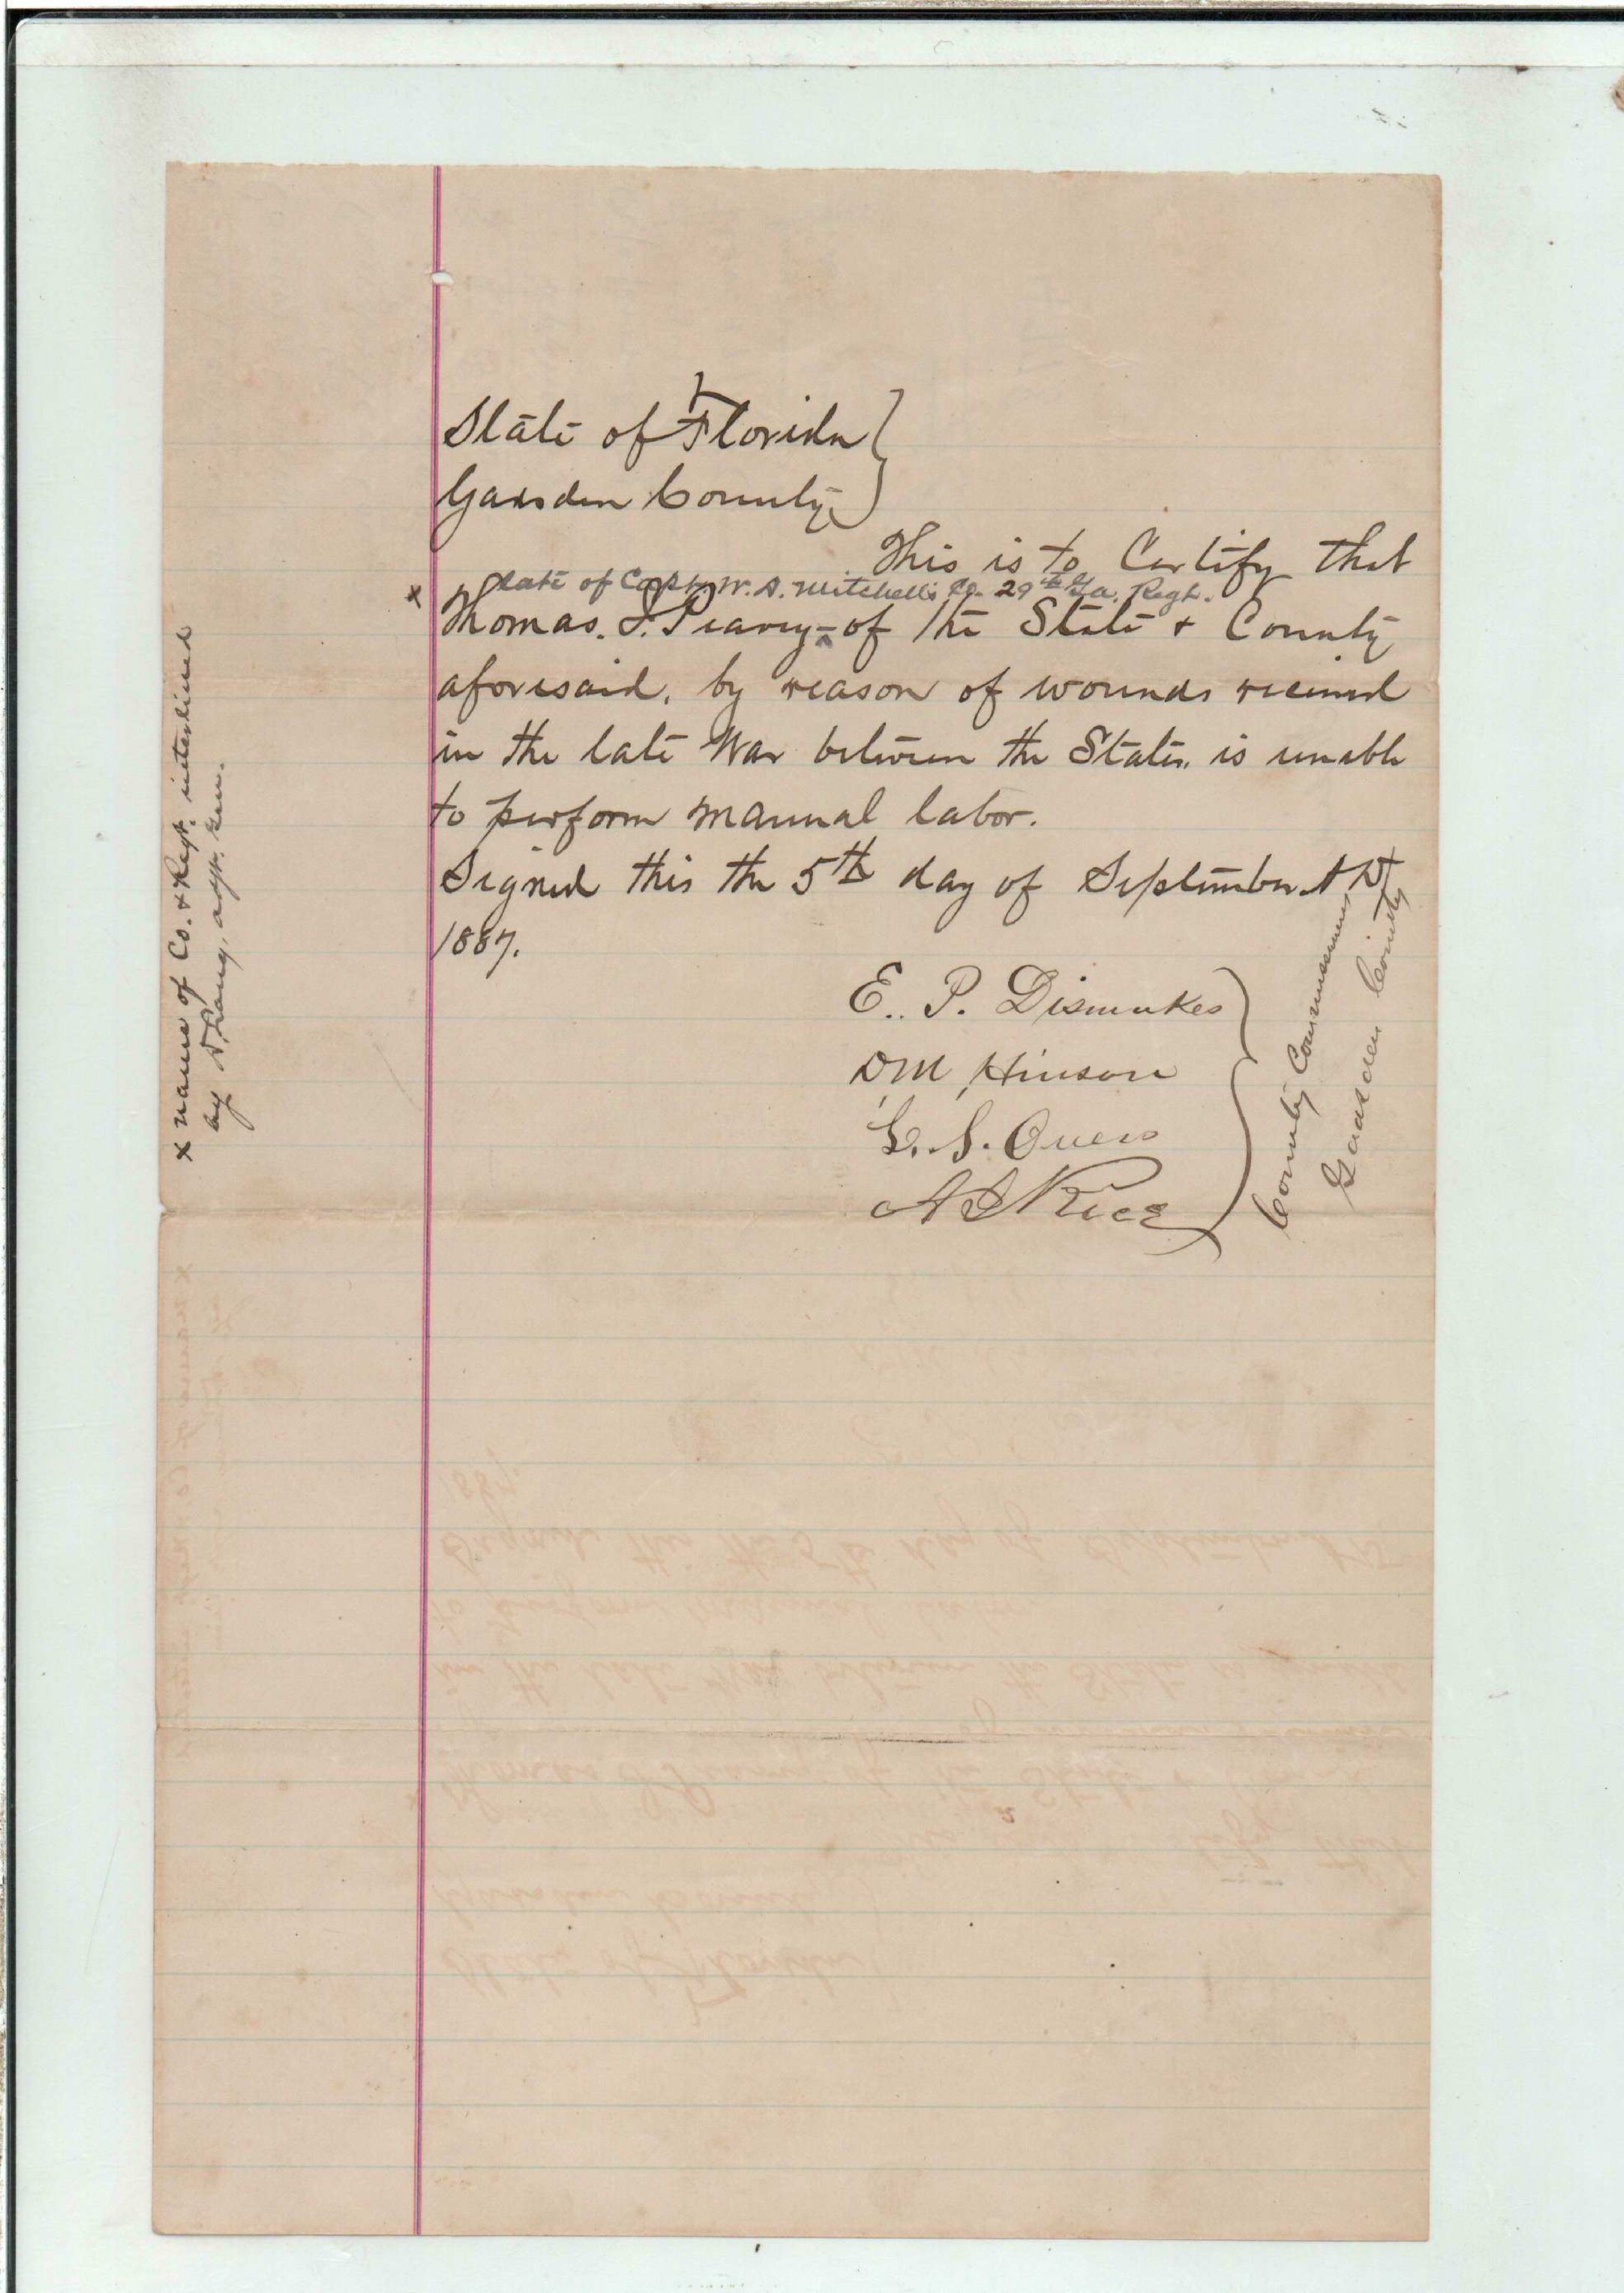 State of Florida
Gadsden County
This is to Certify that
late of Capt. W. D. Mitchell's Co. 29th Ga. Regt.
x Thomas. J. Peavey - of the State + County
aforesaid, by reason of wounds received
in the late War between the States, is unable
to perform manual labor.
Signed this the 5th day of September A D
1887.
E. P. Dismukes
D M Hinson
L. S. Owens
A S Rice
County Commissioners
Gadsden County
x name of Co. + Regt. interlined
by D. Lang, adjt. Gen.